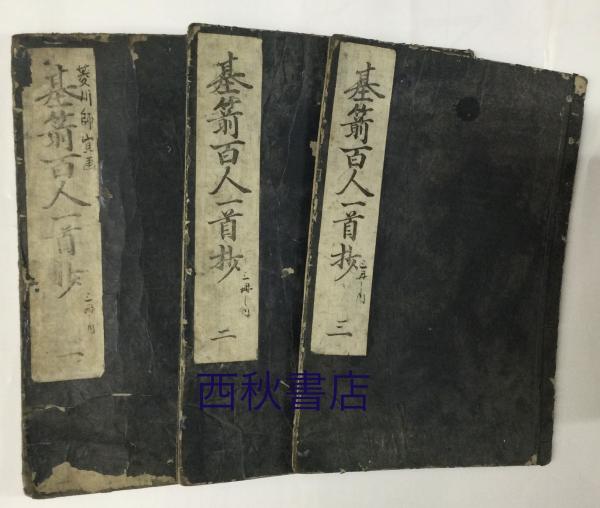 菱川師宣画
基箭百人一首抄
三冊ノ内
一
基箭百人一首抄
三冊ノ内
二
基箭百人一首抄
三冊ノ内
三
西秋書店